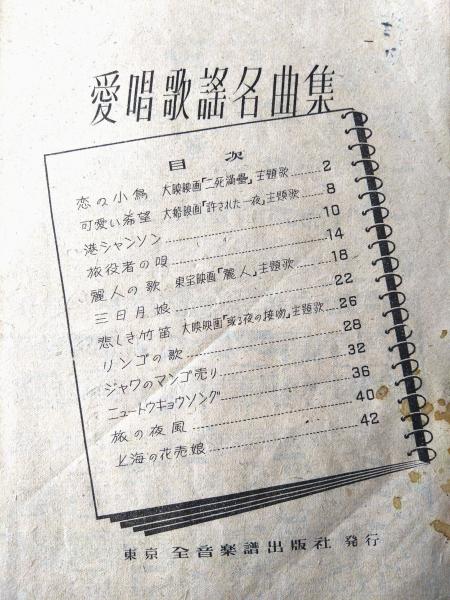 愛唱歌謠名曲集
目次
恋の小鳥 大映映画「二死満壘」主題歌 2
可愛い希望 大船映画「許された一夜」主題歌 8
港シャンソン 10
旅役者の唄 14
麗人の歌 東宝映画「麗人」主題歌 18
三日月娘 22
悲しき竹笛 大映映画「或る夜の接吻」主題歌 26
リンゴの歌 28
ジャワのマンゴ売り 32
ニュートウキョウソング 36
旅の夜風 40
上海の花売娘 42
東京 全音楽譜出版社 発行